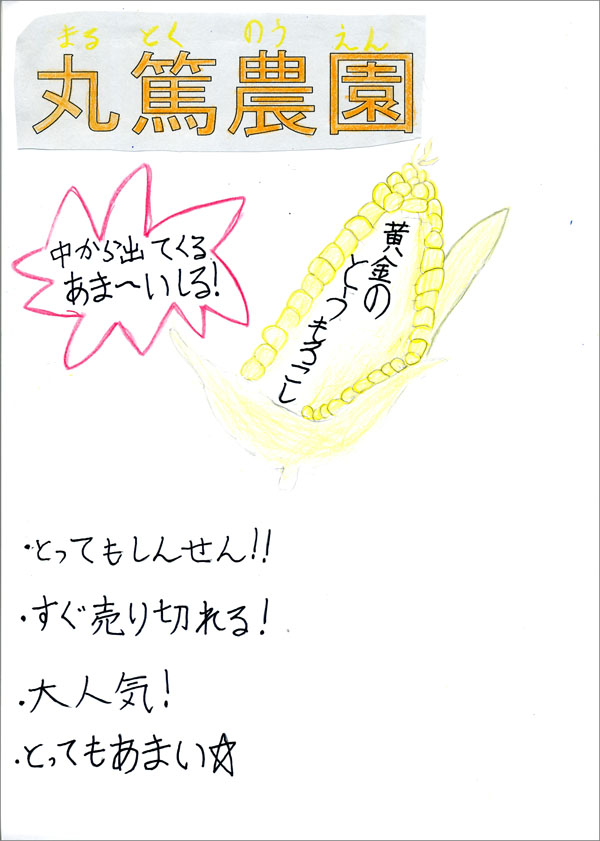 まる とく のう えん
丸篤農園
中から出てくる
あま〜いしる!
黄金の
とうもろこし
・とってもしんせん!!
・すぐ売り切れる!
・大人気!
・とってもあまい☆